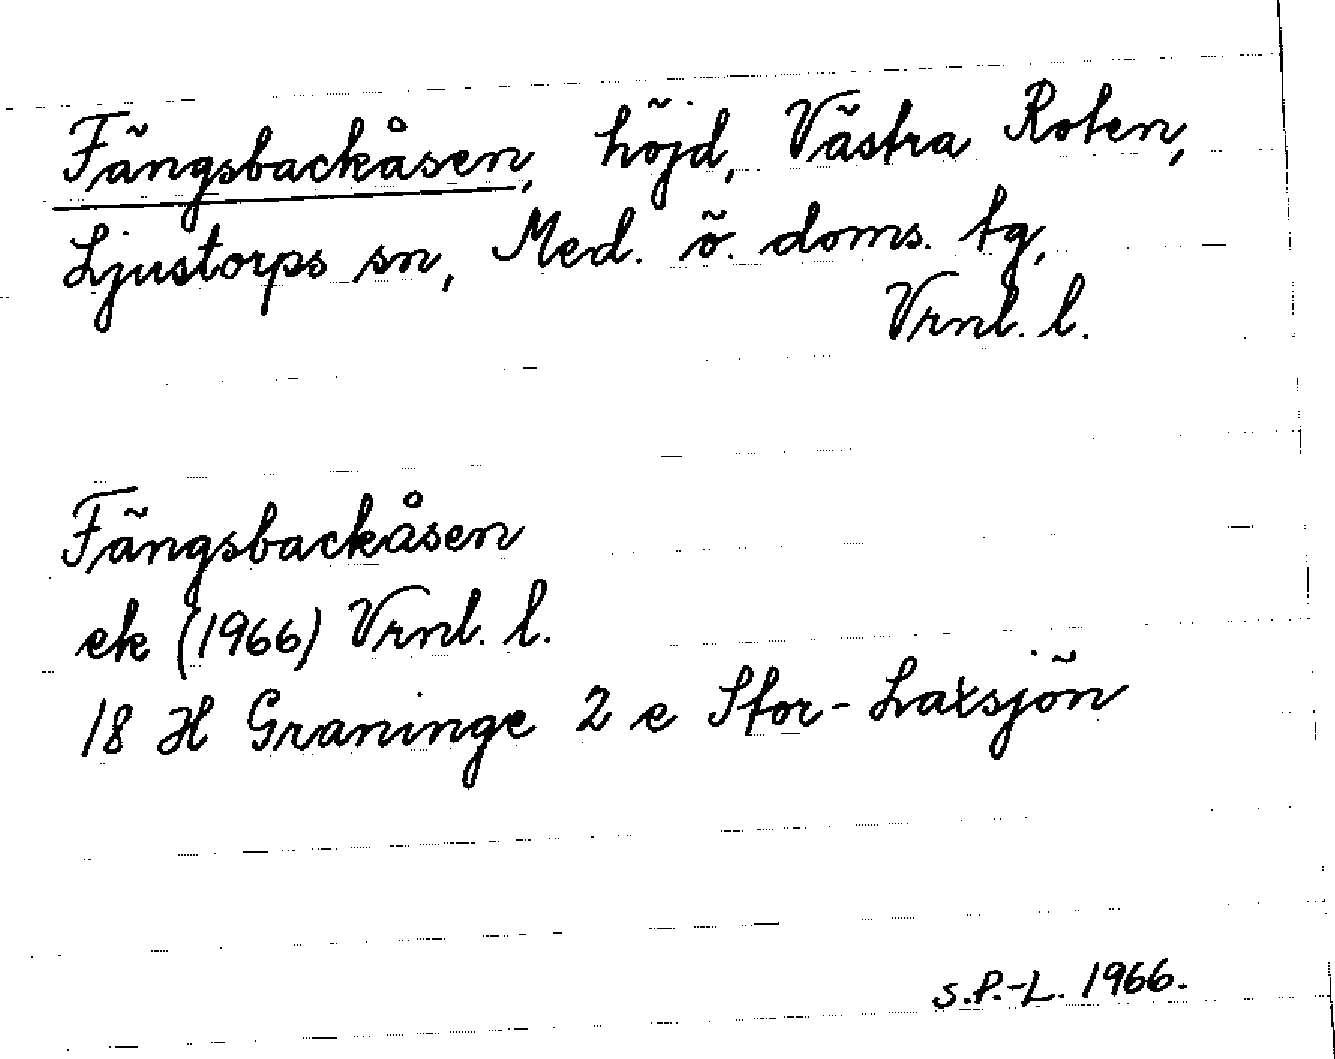 Fängsbackåsen, höjd, Västra Roten,
Ljustorps sn, Med. ö. doms. tg,
Vrnl. l.
Fängsbackåsen
ek (1966) Vrnl. l.
18 H Graninge 2 e Stor-Laxsjön
S.P.-L. 1966.